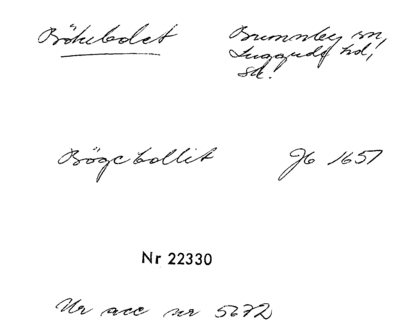 Bökebolet Brunnby sn,
Luggude hd,
Sk.
Bögebollit Jb 1651
Nr 22330
Ur acc nr 5672